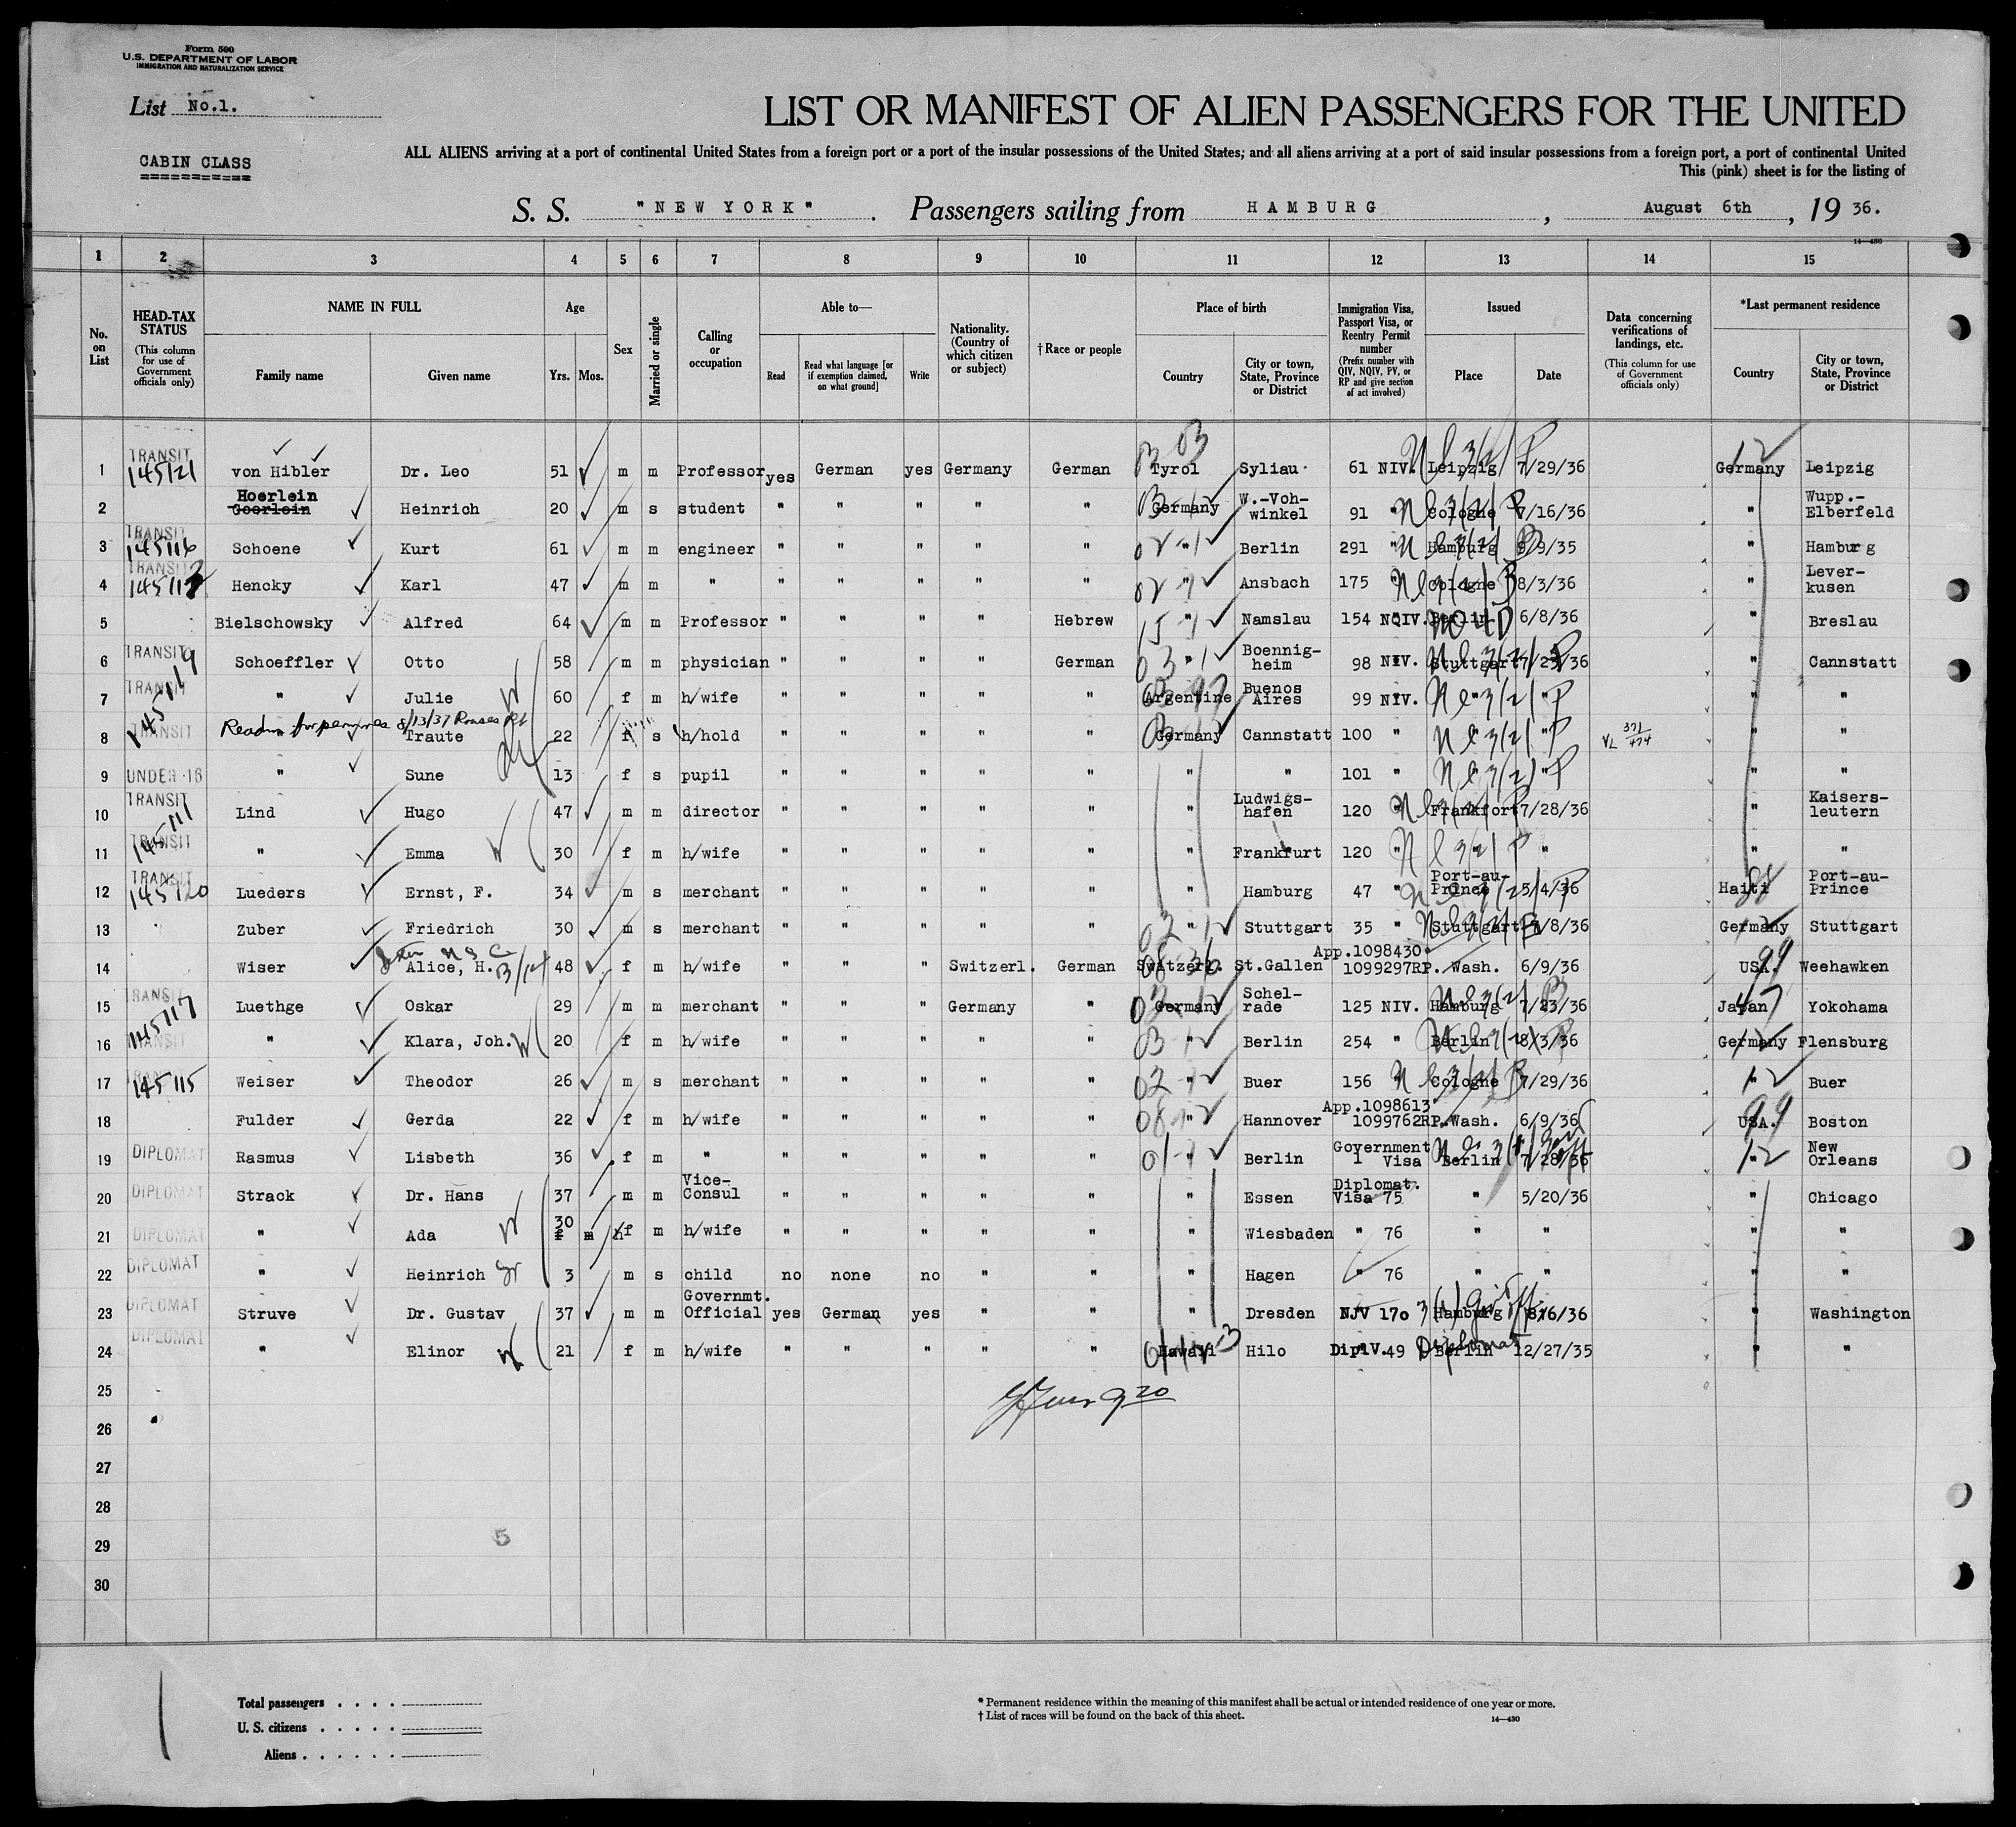 Form 500
U.S. DEPARTMENT OF LABOR
IMMIGRATION AND NATURALIZATION SERVICE
List No.1.
LIST OR MANIFEST OF ALIEN PASSENGERS FOR THE UNITED
CABIN CLASS
ALL ALIENS arriving at a port of continental United States from a foreign port or a port of the insular possessions of the United States; and all aliens arriving at a port of said insular possessions from a foreign port, a port of continental United
This (pink) sheet is for the listing of
S. S. "NEW YORK". Passengers sailing from HAMBURG, August 6th, 19 36.
14—430
1 2 3 4 5 6 7 8 9 10 11 12 13 14 15
No. on List
HEAD-TAX STATUS (This column for use of Government officials only)
NAME IN FULL Family name Given name
Age Yrs. Mos.
Sex
Married or single
Calling or occupation
Able to— Read Read what language [or if exemption claimed, on what ground] Write
Nationality. (Country of which citizen or subject)
† Race or people
Place of birth Country City or town, State, Province or District
Immigration Visa, Passport Visa, or Reentry Permit number (Prefix number with QIV, NQIV, PV, or RP and give section of act involved)
Issued Place Date
Data concerning verifications of landings, etc. (This column for use of Government officials only)
*Last permanent residence Country City or town, State, Province or District
1 TRANSIT 145121 von Hibler Dr. Leo 51 m m Professor yes German yes Germany German Tyrol Syliau 61 NIV. Leipzig 7/29/36 Germany Leipzig
2 Hoerlein Goorlein Heinrich 20 m s student " " " " " Germany W.-Voh-winkel 91 " Cologne 7/16/36 " Wupp.-Elberfeld
3 TRANSIT 145116 Schoene Kurt 61 m m engineer " " " " " " Berlin 291 " Hamburg 9/9/35 " Hamburg
4 TRANSIT Hencky Karl 47 m m " " " " " " " Ansbach 175 " Cologne 8/3/36 " Lever-kusen
5 Bielschowsky Alfred 64 m m Professor " " " " Hebrew " Namslau 154 NQIV. Berlin 6/8/36 " Breslau
6 TRANSIT 145119 Schoeffler Otto 58 m m physician " " " " German " Boennig-heim 98 NIV. Stuttgart 7/23/36 " Cannstatt
7 TRANSIT " Julie 60 f m h/wife " " " " " Argentine Buenos Aires 99 NIV. " " " "
8 TRANSIT " Traute 22 f s h/hold " " " " " Germany Cannstatt 100 " " " 371 474 " "
9 UNDER 16 " Sune 13 f s pupil " " " " " " " 101 " " " " "
10 TRANSIT 145111 Lind Hugo 47 m m director " " " " " " Ludwigs-hafen 120 " Frankfort 7/28/36 " Kaisers-leutern
11 TRANSIT " Emma 30 f m h/wife " " " " " " Frankfurt 120 " " " " "
12 TRANSIT 145120 Lueders Ernst, F. 34 m s merchant " " " " " " Hamburg 47 " Port-au-Prince 5/4/36 Haiti Port-au-Prince
13 Zuber Friedrich 30 m s merchant " " " " " " Stuttgart 35 " Stuttgart 7/8/36 Germany Stuttgart
14 Wiser Alice, H. 48 f m h/wife " " " Switzerl. German Switzerl. St.Gallen App.1098430 1099297RP. Wash. 6/9/36 USA. Weehawken
15 TRANSIT 145117 Luethge Oskar 29 m m merchant " " " Germany " Germany Schel-rade 125 NIV. Hamburg 7/23/36 Japan Yokohama
16 TRANSIT " Klara, Joh. 20 f m h/wife " " " " " " Berlin 254 " Berlin 8/3/36 Germany Flensburg
17 145115 Weiser Theodor 26 m s merchant " " " " " " Buer 156 " Cologne 7/29/36 " Buer
18 Fulder Gerda 22 f m h/wife " " " " " " Hannover App.1098613 1099762RP. Wash. 6/9/36 USA. Boston
19 DIPLOMAT Rasmus Lisbeth 36 f m " " " " " " " Berlin Government 1 Visa Berlin 7/28/36 " New Orleans
20 DIPLOMAT Strack Dr. Hans 37 m m Vice-Consul " " " " " " Essen Diplomat. Visa 75 " 5/20/36 " Chicago
21 DIPLOMAT " Ada 30 f m h/wife " " " " " " Wiesbaden " 76 " " " "
22 DIPLOMAT " Heinrich 3 m s child no none no " " " Hagen " 76 " " " "
23 DIPLOMAT Struve Dr. Gustav 37 m m Governmt. Official yes German yes " " " Dresden NIV 170 Hamburg 8/6/36 " Washington
24 DIPLOMAT " Elinor 21 f m h/wife " " " " " Hawaii Hilo Dipl V. 49 Diplomat Berlin 12/27/35 " "
25
26
27
28
29
30
5
Total passengers . . . .
U. S. citizens . . . . .
Aliens . . . . . .
* Permanent residence within the meaning of this manifest shall be actual or intended residence of one year or more.
† List of races will be found on the back of this sheet.
14—430